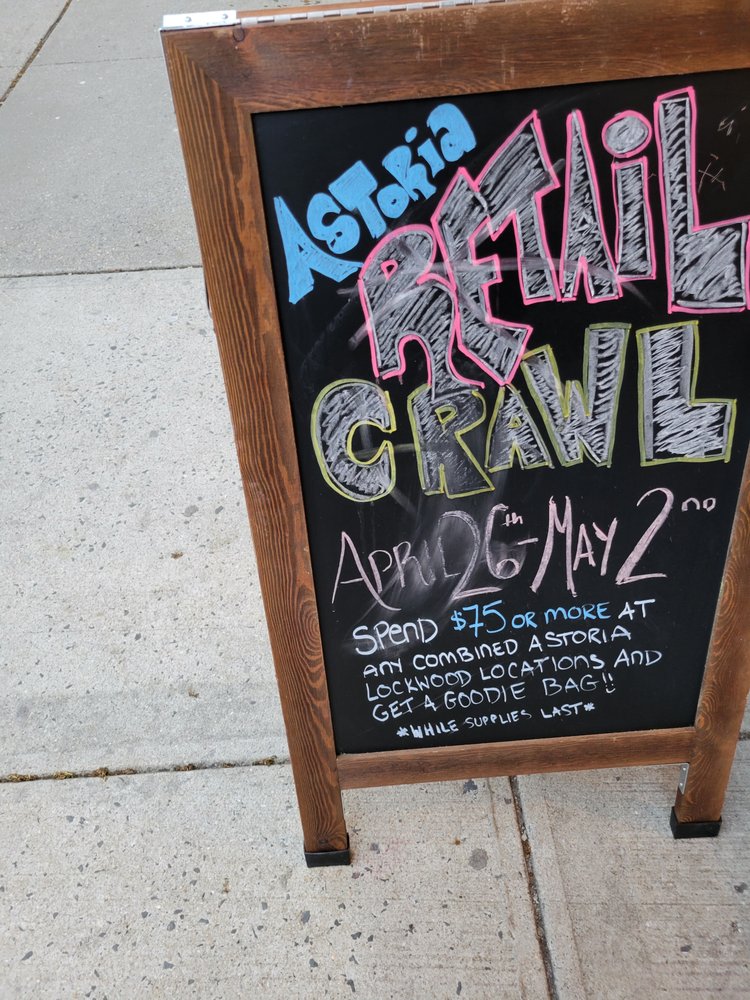 ASTORIA
RETAIL
CRAWL
APRIL 26th - MAY 2ND
SPEND $75 OR MORE AT
ANY COMBINED ASTORIA
LOCKWOOD LOCATIONS AND
GET A GOODIE BAG!!
*WHILE SUPPLIES LAST*